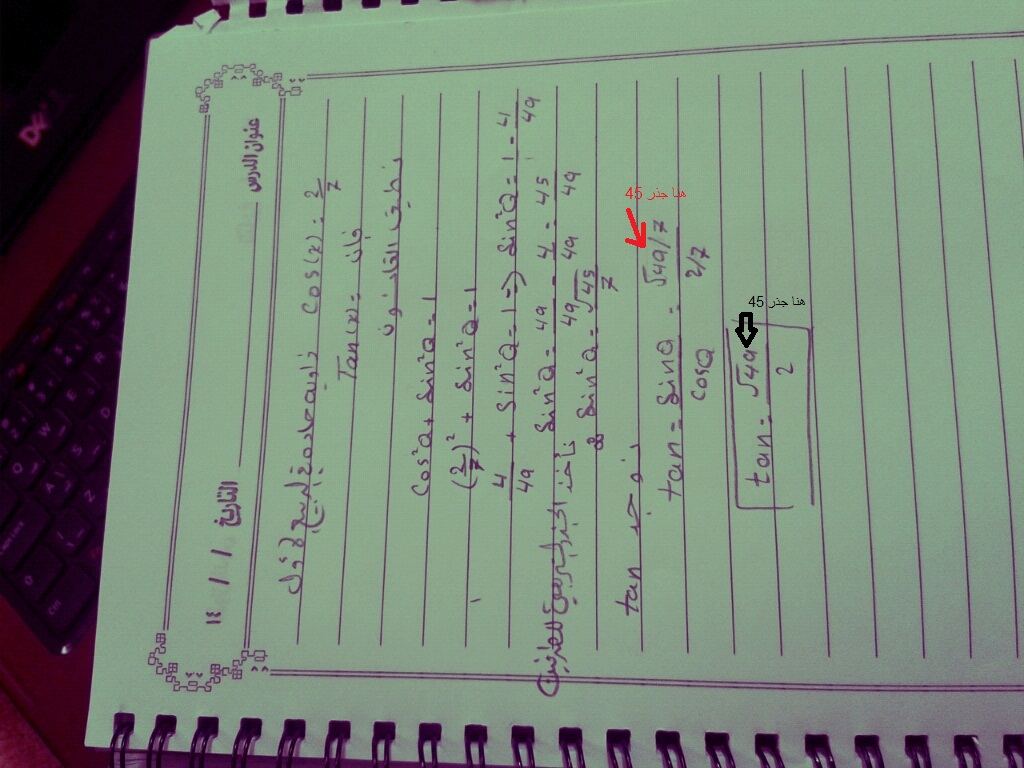 عنوان الدرس
التاريخ / / ١٤
زاوية حادة في الربع الأول cos(x) = 2/7
Tan(x) = فإن
نطبق القانون
cos²Q + sin²Q = 1
(2/7)² + sin²Q = 1
4/49 + sin²Q = 1 => sin²Q = 1 - 4/49
sin²Q = 49/49 - 4/49 = 45/49
نأخذ الجذر التربيعي للطرفين
∞ sin²Q = √45/7
نوجد tan
هنا جذر 45
tan = sinQ/cosQ = √49/7 / 2/7
هنا جذر 45
tan = √49/2